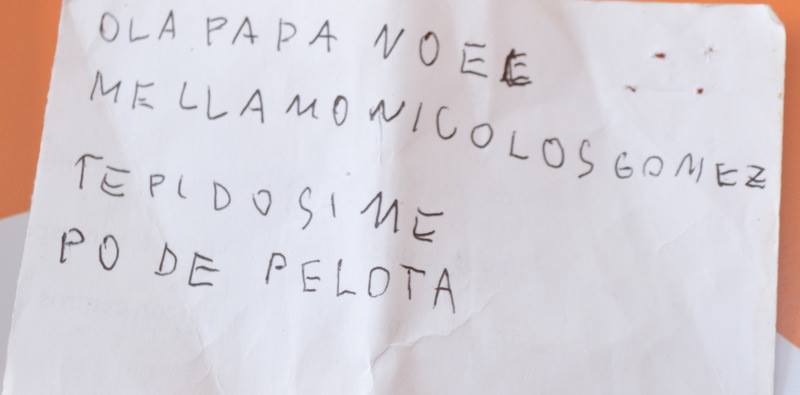 OLA PAPA NOEE
ME LLAMO NICOLOS GOMEZ
TE PIDO SI ME
PO DE PELOTA